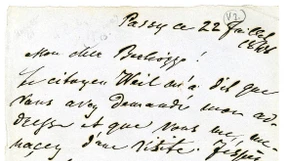 Passy ce 22 Juillet
Mon cher !
Le citoyen Weil m'a dit que
vous avez demandé mon ad-
dresse et que vous me me-
nacez d'une visite. J'espère